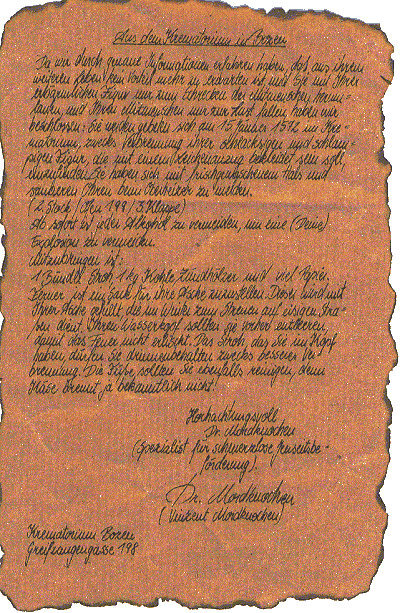 Aus dem Krematorium in Bozen
Da wir durch genaue Informationen erfahren haben, daß aus ihrem
weiteren Leben kein Vorteil mehr zu erwarten ist und Sie mit Ihrer
erbärmlichen Figur nur zum Schrecken der Mitmenschen herum-
laufen, und Ihren Mitmenschen nur zur Last fallen, haben wir
beschlossen: Sie werden gebeten sich am 15 Jänner 1512 im Kre-
matorium, zwecks Verbrennung ihrer und schlam-
pigen Figur, die mit einem Leichenanzug bekleidet sein soll,
einzufinden. Sie haben sich mit frischgewaschenem Hals und
sauberen Ohren beim Oberheizer zu melden.
(2. Stock / Ofen 199 / 3. Klappe)
Ab sofort ist jeder Alkohol zu vermeiden, um eine (Deine)
Explosion zu vermeiden.
Mitzubringen ist:
1 Bündel Stroh, 1 kg Kohle, Zündhölzer und viel Papier.
Ferner ist ein Sack für ihre Asche zuzustellen. Dieser wird mit
Ihrer Asche gefüllt, die im Winter zum Streuen auf eisigen Stra-
ßen dient. Ihren Wasserkopf sollten sie vorher entleeren,
damit das Feuer nicht erlischt. Das Stroh, das Sie im Kopf
haben, dürfen Sie drinnenbehalten zwecks besserer Ver-
brennung. Die Füße sollten Sie ebenfalls reinigen, denn
Käse brennt ja bekanntlich nicht!
Hochachtungsvoll
Dr. Mordknochen
(Spezialist für schmerzlose Jenseitsbe-
förderung).
Dr. Mordknochen
(Vinkent Mordknochen)
Krematorium Bozen
Greifzangengasse 198